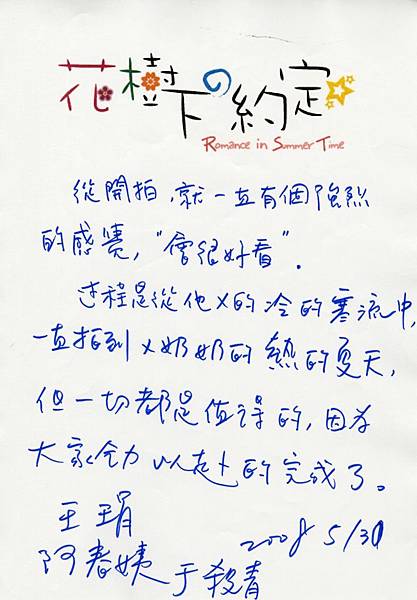 花樹下の約定
Romance in Summer Time
從開拍,就一直有個強烈
的感覺,"會很好看".
过程是從他X的冷的寒流中,
一直拍到X奶奶的熱的夏天,
但一切都是值得的,因为
大家全力以赴的完成了。
王琄
2008 5/30
阿春姨于殺青